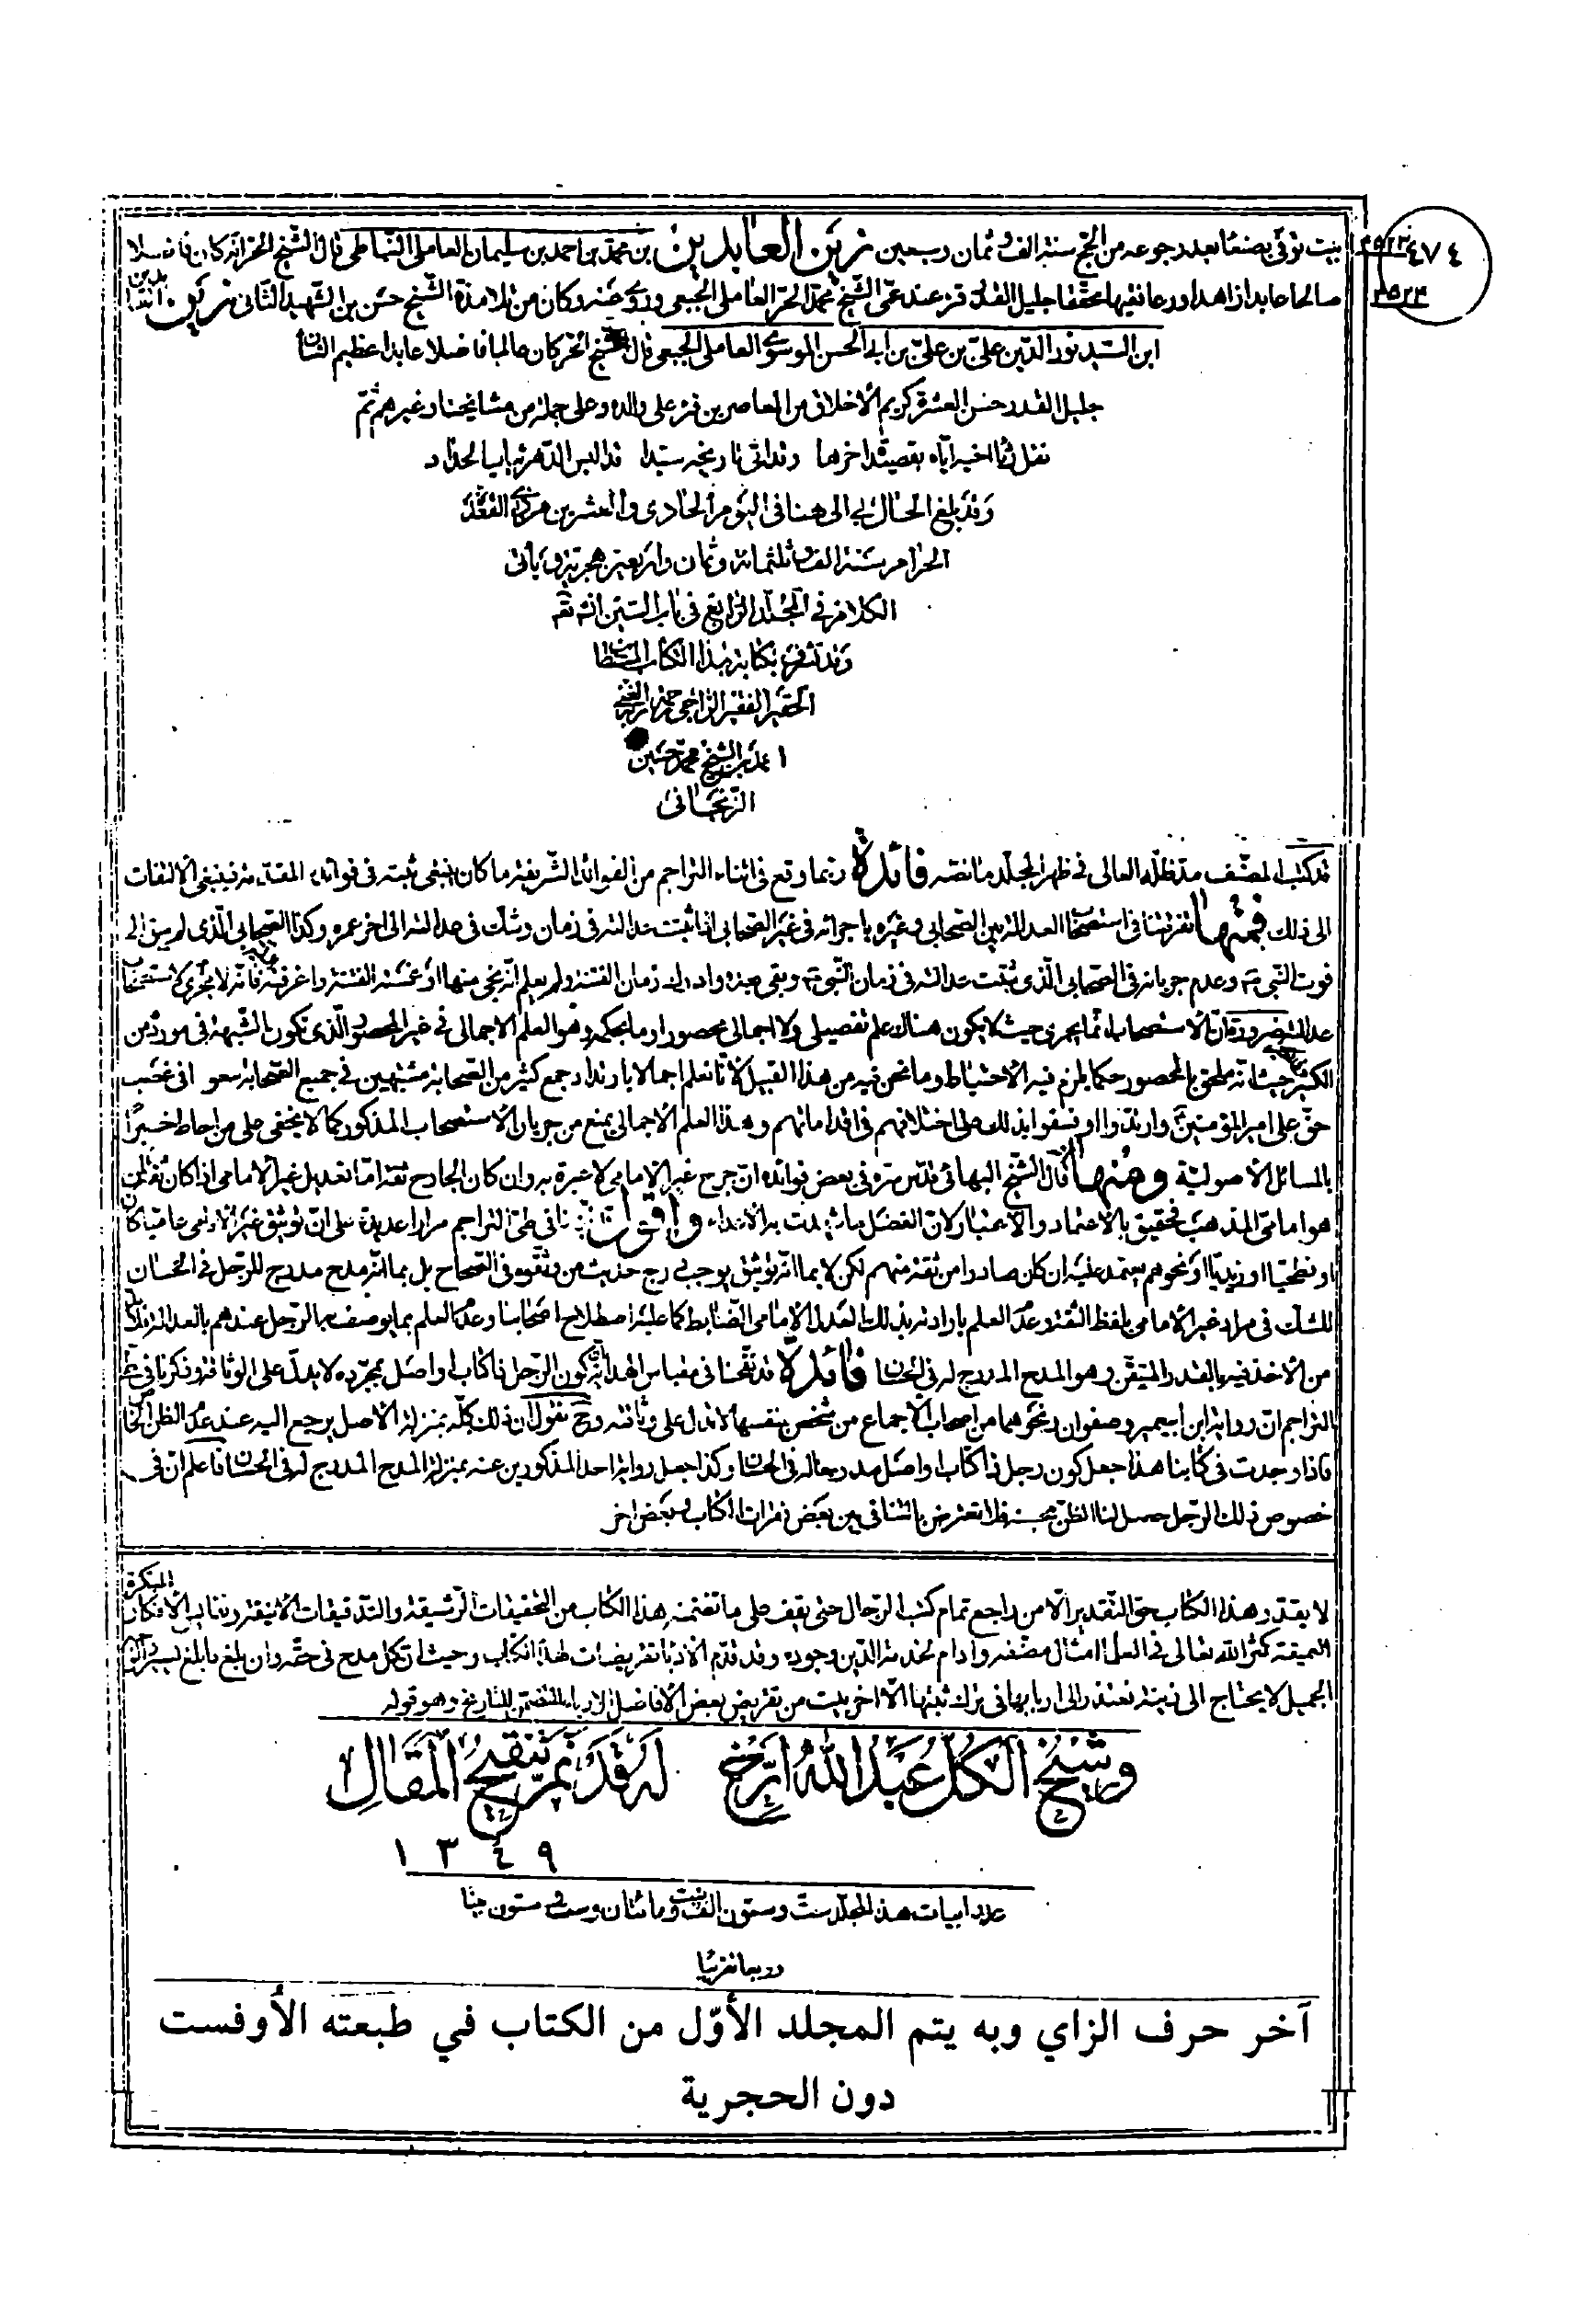 ٤٧٤
بيت توفّى بصنعا بعد رجوعه من الحجّ سنة الف وثمان وسبعين زين العابدين بن محمّد بن احمد بن سليمان العاملى النّباطى قال الشّيخ الحرّ انّه كان فاضلا
صالحا عابدا زاهدا ورعا فقيها محقّقا جليل القدر قرء عند عمّى الشّيخ محمّد الحرّ العاملى الجبعى وروى عنه وكان من تلامذة الشّيخ حسن بن الشّهيد الثّانى زين
ابن السّيد نور الدّين علىّ بن علىّ بن ابى الحسن الموسوى العاملى الجبعى قال الشيخ الحرّ كان عالما فاضلا عابدا عظيم الشان
جليل القدر حسن العشرة كريم الاخلاق من المعاصرين قرء على والده وعلى جملة من مشايخنا وغيرهم ثمّ
نقل رثاء اخيه ايّاه بقصيدة اخرها وقد اتى تاريخه سيّدا قد البس الدّهر ثياب الحداد
وقد بلغ الحال بى الى هنا فى اليوم الحادى والعشرين من ذى القعدة
الحرام سنة الف وثلثمائة وثمان واربعين هجريّة ويأتى
الكلام فى المجلّد الرّابع فى باب السّين انش تع
وقد تشرف بكتابة هذا الكتاب المستطاب
الحقير الفقير الرّاجى رحمة ربّه الغنى
ابن الشّيخ محمّد حسين
الزّنجانى
قد كتب المصنّف مدّ ظلّه العالى فى ظهر المجلّد ما نصّه فائدة ربّما وقع فى اثناء التراجم من الفوائد الشّريفة ما كان ينبغى ثبته فى فوائد المقدّمة فينبغى الالتفات
الى ذلك فمنها تفرقتنا فى استصحاب العدالة بين الصّحابى وغيره باجرائه فى غير الصّحابى اذا ثبتت عدالته فى زمان وشكّ فى عدالته الى اخر عمره وكذا الصّحابى الّذى لم يبق الى
فوت النّبى ص وعدم جريانه فى الصّحابى الّذى ثبتت عدالته فى زمان النّبى ص وبقى بعده وادرك زمان الفتنة ولم يعلم انّه نجى منها او غمسته الفتنة واغرقته فانّه لا يجرى استصحاب
عدالته ضرورة انّ الاستصحاب انّما يجرى حيث لا يكون هناك علم تفصيلى ولا اجمالى محصور او ما بحكمه وهو العلم الاجمالى فى غير المحصور الّذى تكون الشّبهة فى مورده من
الكثير حيث انّه ملحق بالمحصور حكما يلزم فيه الاحتياط وما نحن فيه من هذا القبيل لانّا نعلم اجمالا بارتداد جمع كثير من الصّحابة مشتبهين فى جميع الصّحابة سعوا فى غصب
حقّ على امير المؤمنين ع وارتدّوا او فسقوا بذلك على اختلافهم فى اقداماتهم وهذا العلم الاجمالى يمنع من جريان الاستصحاب المذكور كما لا يخفى على من احاط خبرا
بالمسائل الاصوليّة ومنها قال الشّيخ البهائى قدّس سرّه فى بعض فوائده انّ جرح غير الامامى لا عبرة به وان كان الجارح ثقة امّا تعديل غير الامامى اذا كان ثقة لمن
هو امامىّ المذهب فحقيق بالاعتماد والاعتبار لانّ الفضل ما شهدت به الاعداء واقول فى طىّ التراجم مرارا عديدة على انّ توثيق غير الامامى عاميّا كان
او فطحيّا او زيديّا او نحوهم يعتمد عليه ان كان صادرا من ثقة منهم لكن لا بما انّه توثيق يوجب درج حديث من وثّقوه فى الصّحاح بل بما انّه مدح مدرج للرّجل فى الحسان
للشّك فى مراد غير الامامى بلفظ الثّقة وعدم العلم بارادته بذلك العدل الامامى الضّابط كما عليه اصطلاح اصحابنا وعدم العلم بما يوصف به الرّجل عندهم بالعدالة فلا بدّ
من الاخذ فيه بالقدر المتيقّن وهو المدح المدرج له فى الحسان فائدة قد نقّحنا فى مقباس الهداية انّ كون الرّجل ذا كتاب او اصل بمجرّده لا يدلّ على الوثاقة وذكرنا فى طىّ
التراجم انّ رواية ابن ابى عمير وصفوان ونحوهما من اصحاب الاجماع عن شخص بنفسها لا تدلّ على وثاقته وح نقول انّ ذلك كلّه بمنزلة الاصل يرجع اليه عند عدم الظن الخاص
فاذا وجدت فى كتابنا هذا جعل كون رجل ذا كتاب او اصل مدرجا له فى الحسان وكذا جعل رواية احد المذكورين عنه بمنزلة المدح المدرج له فى الحسان فاعلم ان فى
خصوص ذلك الرّجل حصل لنا الظنّ بحسنه فلا تعترض بالتّنافى بين بعض فقرات الكتاب وبعض اخر
لا يقدّر هذا الكتاب حقّ التّقدير الّا من راجع تمام كتب الرّجال حتى يقف على ما تضمّنه هذا الكتاب من التّحقيقات الرّشيقة والتّدقيقات الانيقة ونتايج الافكار المبتكرة
العميقة كثّر اللّه تعالى فى العلماء امثال مصنّفه وادام لخدمة الدّين وجوده وقد قدّم الادباء تقريضات لهذا الكتاب وحيث انّ كل مدح فى حقّه وان بلغ ما بلغ
الجميل لا يحتاج الى زينة نعتذر الى اربابها فى ترك ثبتها الّا اخر بيت من تقريض بعض الافاضل الادباء المتضمّن للتاريخ وهو قوله
وشيخ الكلّ عبد اللّه ارّخ له قد تمّ تنقيح المقال
١٣٤٩
عدد ابيات هذا المجلّد ستّ وستون الف بيت ومائتان وستّ وستون بيتا
تقريبا
آخر حرف الزاي وبه يتم المجلد الأوّل من الكتاب في طبعته الأوفست
دون الحجرية